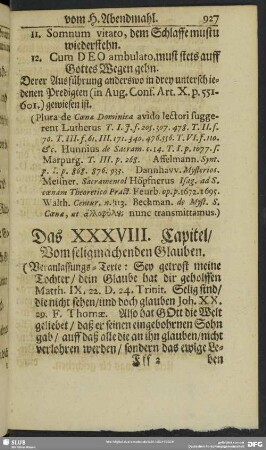 vom H. Abendmahl. 927
11. Somnum vitato, dem Schlaffe mustu
wiederstehn.
12. Cum DEO ambulato, must stets auff
Gottes Wegen gehn.
Derer Ausführung anderswo in drey unterschie-
denen Predigten (in Aug. Conf. Art. X. p. 551-
601.) gewiesen ist.
(Plura de Cœna Dominica avido lectori sugge-
rent Lutherus
&c. Hunnius de Sacram. c. 14. T. I. p. 1077. f.
Marpurg. T. III. p. 268. Affelmann. Synt.
p. I. p. 868. 876. 935. Dannhavv. Mysterios.
Meisner. Sacramental Höpfnerus Isag. ad S.
cœnam Theoretico Pract. Feurb. op. p. 1672. 1695.
Walth. Centur. p. 113. Beckman. de Myst. S.
Cœnæ, ut nunc transmittamus.)
Das XXXVIII. Capitel/
Vom seligmachenden Glauben.
(Veranlassungs-Texte: Sey getrost meine
Tochter/ dein Glaube hat dir geholffen
Matth. IX. 22. D. 24. Trinit. Selig sind/
die nicht sehen/ und doch glauben Joh. XX.
29. F. Thomæ. Also hat GOtt die Welt
geliebet/ daß er seinen eingebohrnen Sohn
gab/ auff daß alle die an ihn glauben/ nicht
verlohren werden/ sondern das ewige Le-
Fff 2 ben
SLUB